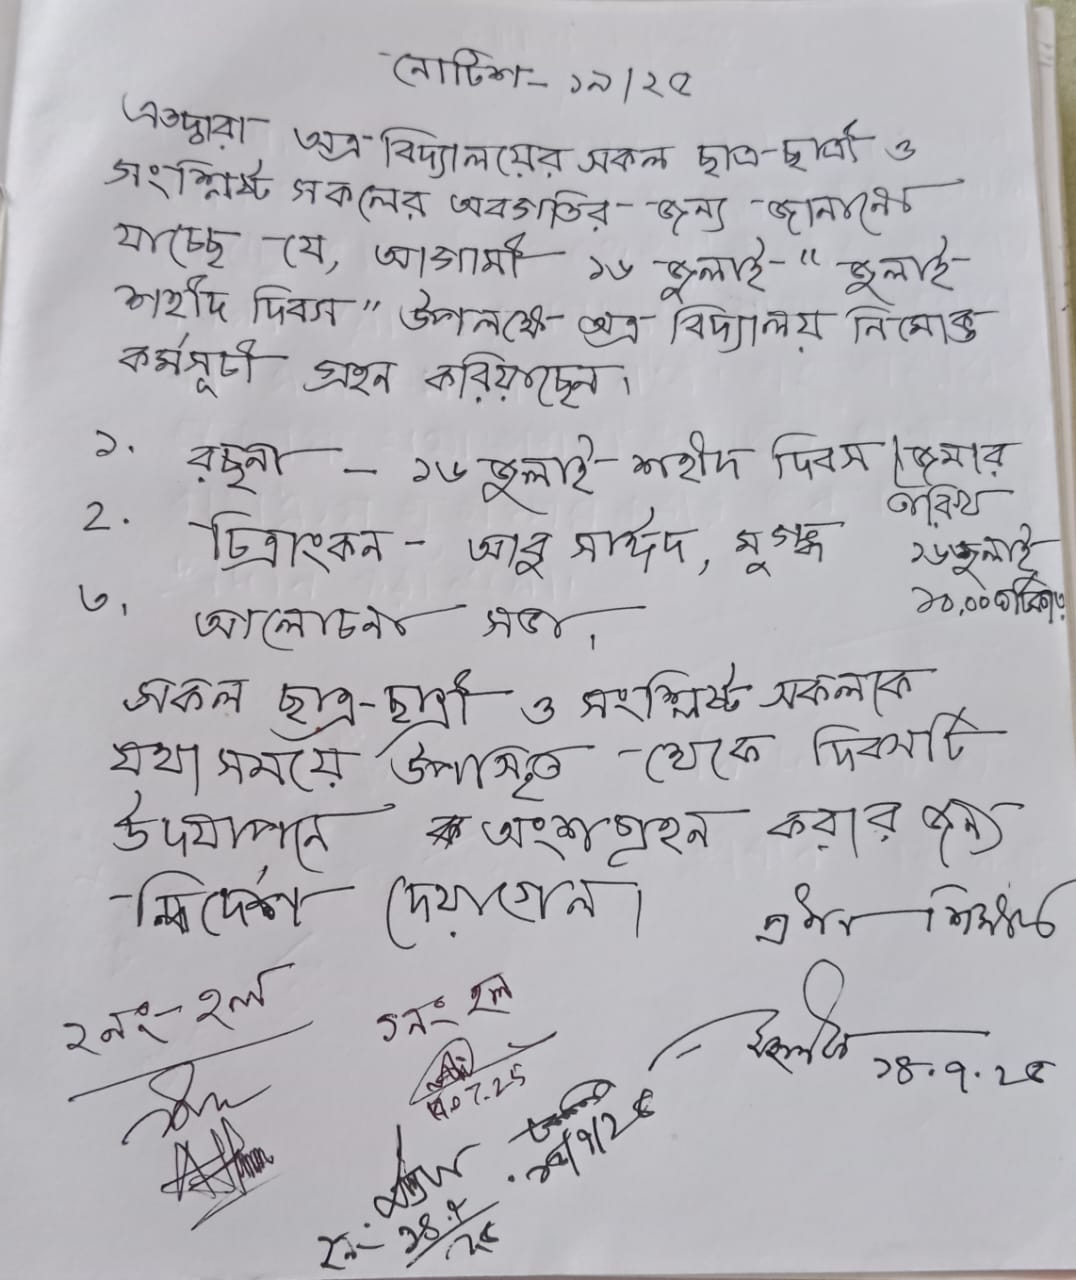 নোটিশ - ১৯/২৫
এতদ্বারা অত্র বিদ্যালয়ের সকল ছাত্র-ছাত্রী ও
সংশ্লিষ্ট সকলের অবগতির জন্য জানানো
যাচ্ছে যে, আগামী ১৬ জুলাই "জুলাই
শহীদ দিবস" উপলক্ষে অত্র বিদ্যালয় নিমোক্ত
কর্মসূচী গ্রহন করিয়াছেন।
১. রছনা - ১৬ জুলাই শহীদ দিবস (জমার
তারিখ
২. চিত্রাংকন - আবু সাঈদ, মুগ্ধ
১৬ জুলাই
১০.০০ ঘটিকায়
৩. আলোচনা সভা,
সকল ছাত্র-ছাত্রী ও সংশ্লিষ্ট সকলকে
যথা সময়ে উপস্থিত থেকে দিবসটি
উদযাপনে অংশগ্রহন করার জন্য
নির্দেশ দেয়াগেল।
প্রধান শিক্ষক
২নং- হল
১নং হল
১৪.৭.২৫
১৪.৭
২৫